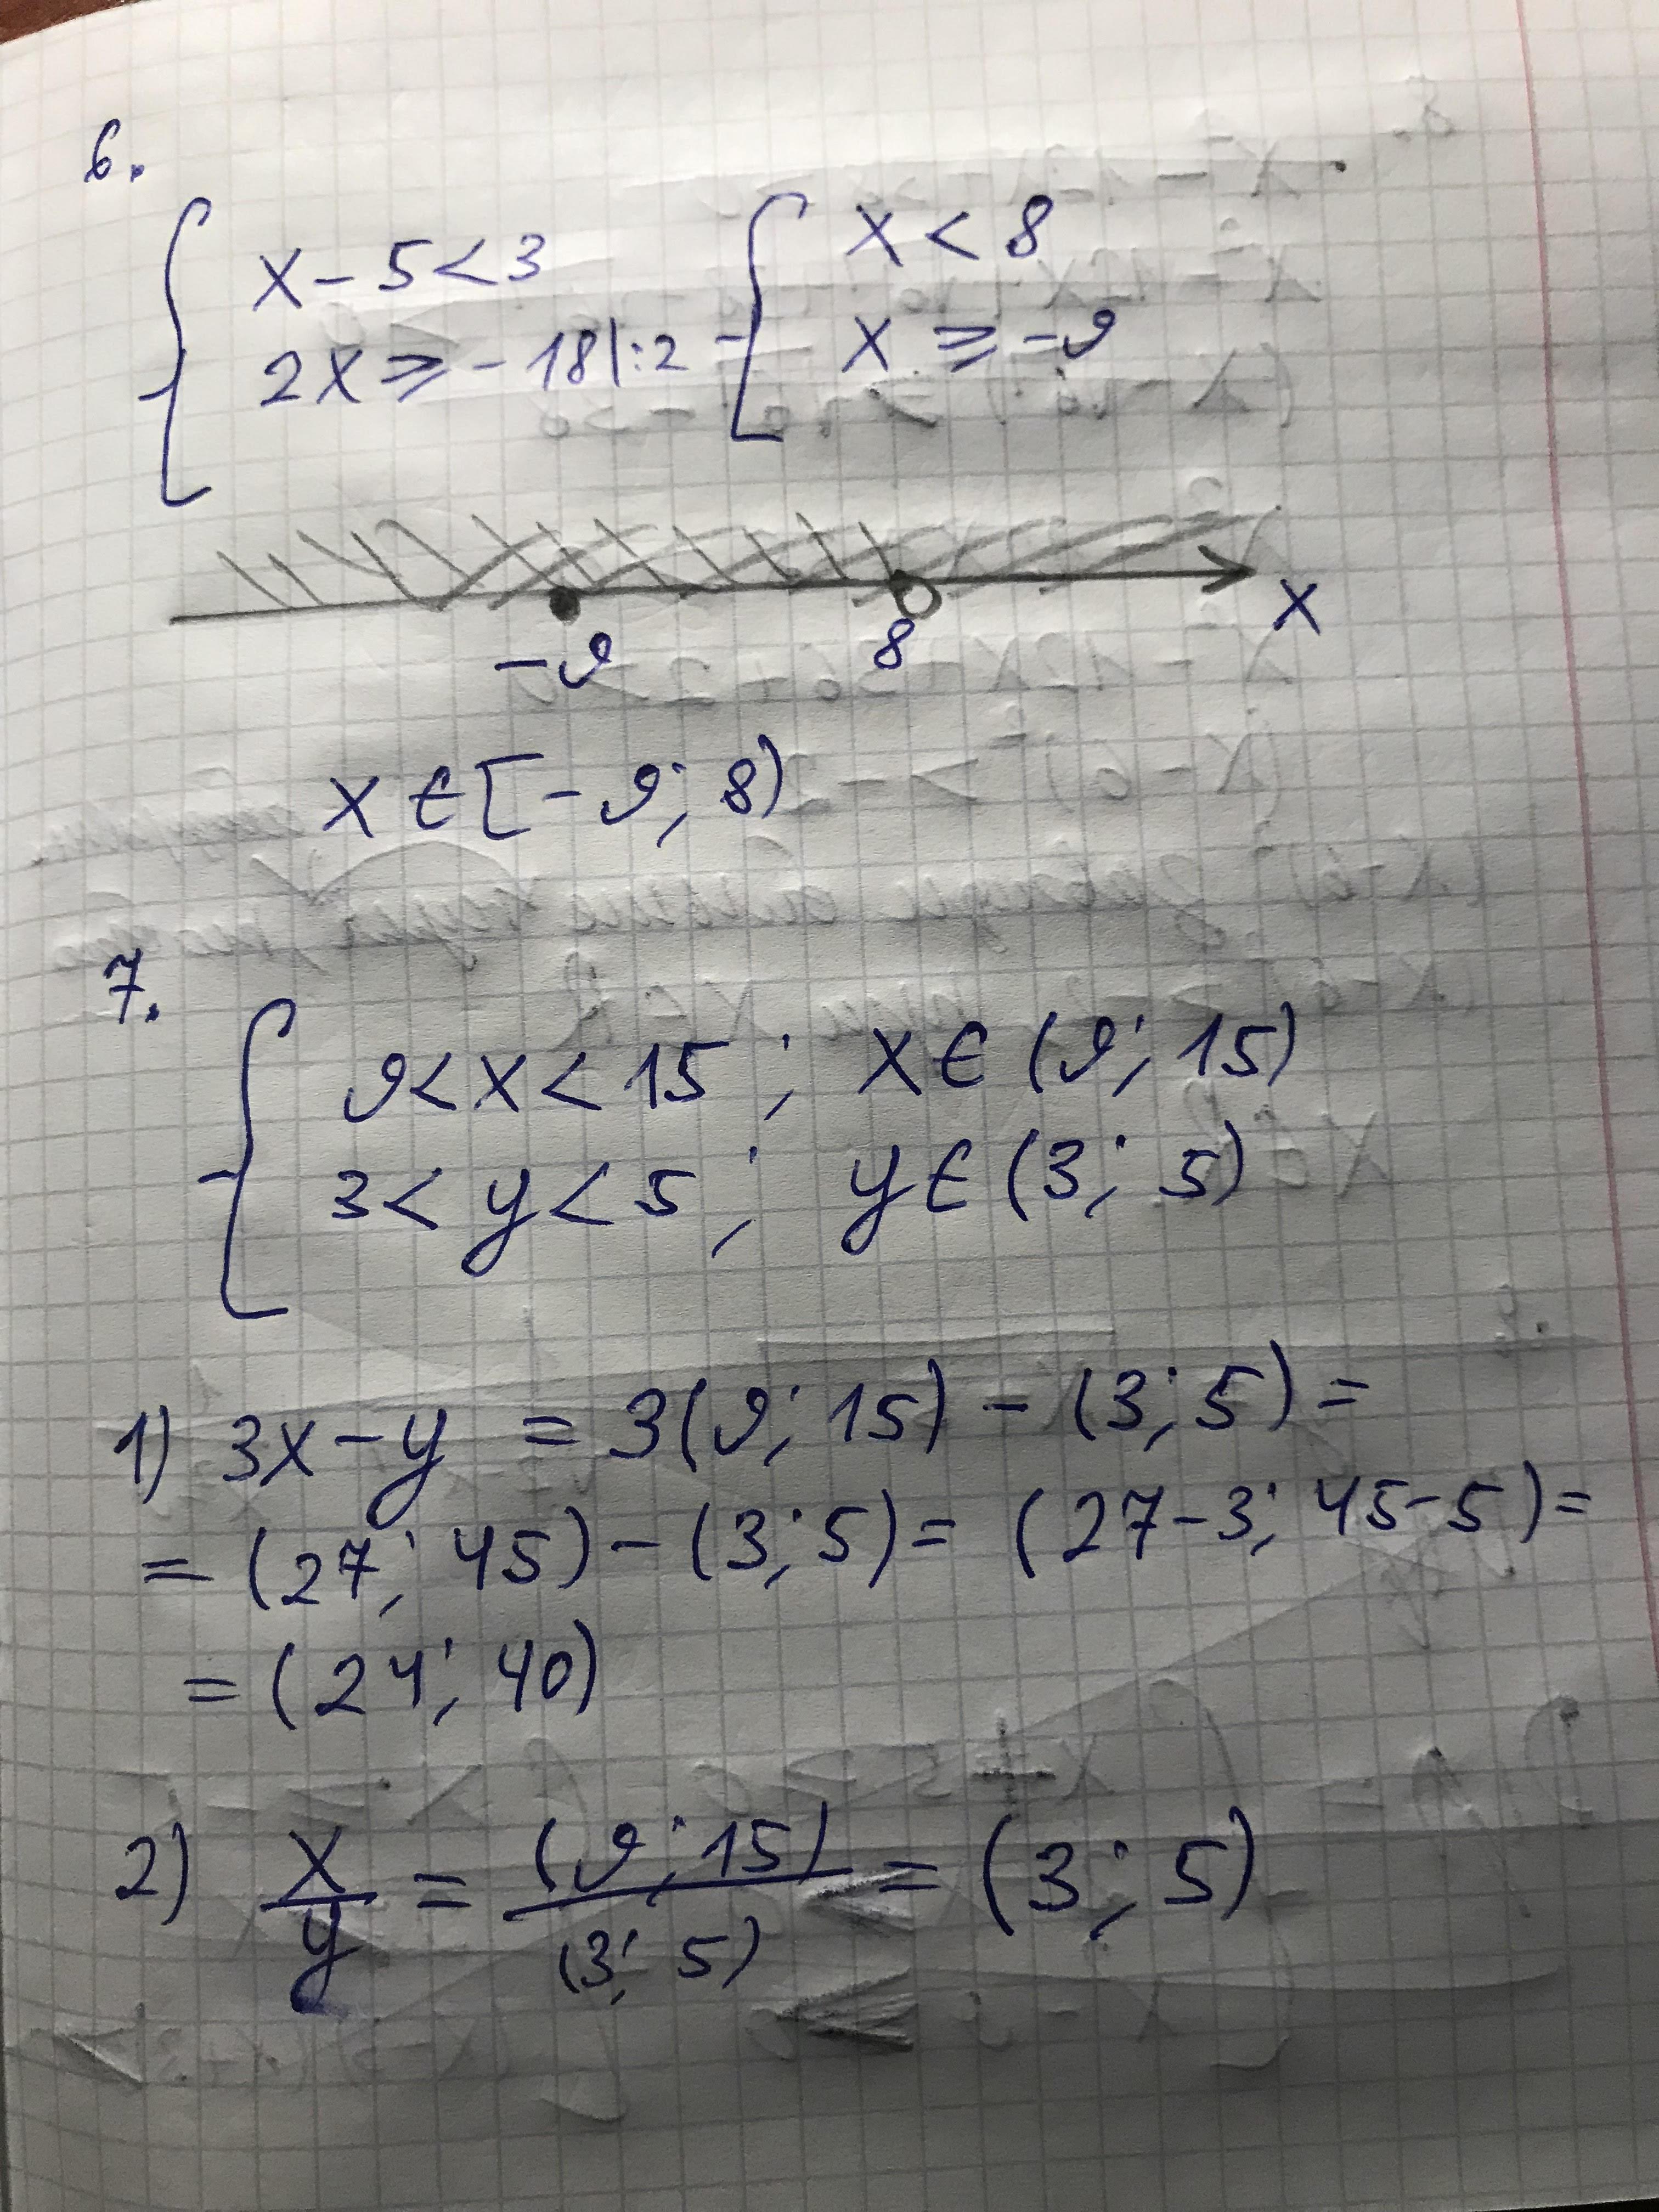 6.
{ x - 5 < 3
2x ⩾ - 18 |:2
{ x < 8
x ⩾ -9
-9 8 x
x ∈ [-9; 8)
7.
{ 9 < x < 15; x ∈ (9; 15)
3 < y < 5; y ∈ (3; 5)
1) 3x - y = 3(9; 15) - (3; 5) =
= (27; 45) - (3; 5) = (27-3; 45-5) =
= (24; 40)
2) x/y = (9; 15)/(3; 5) = (3; 5)